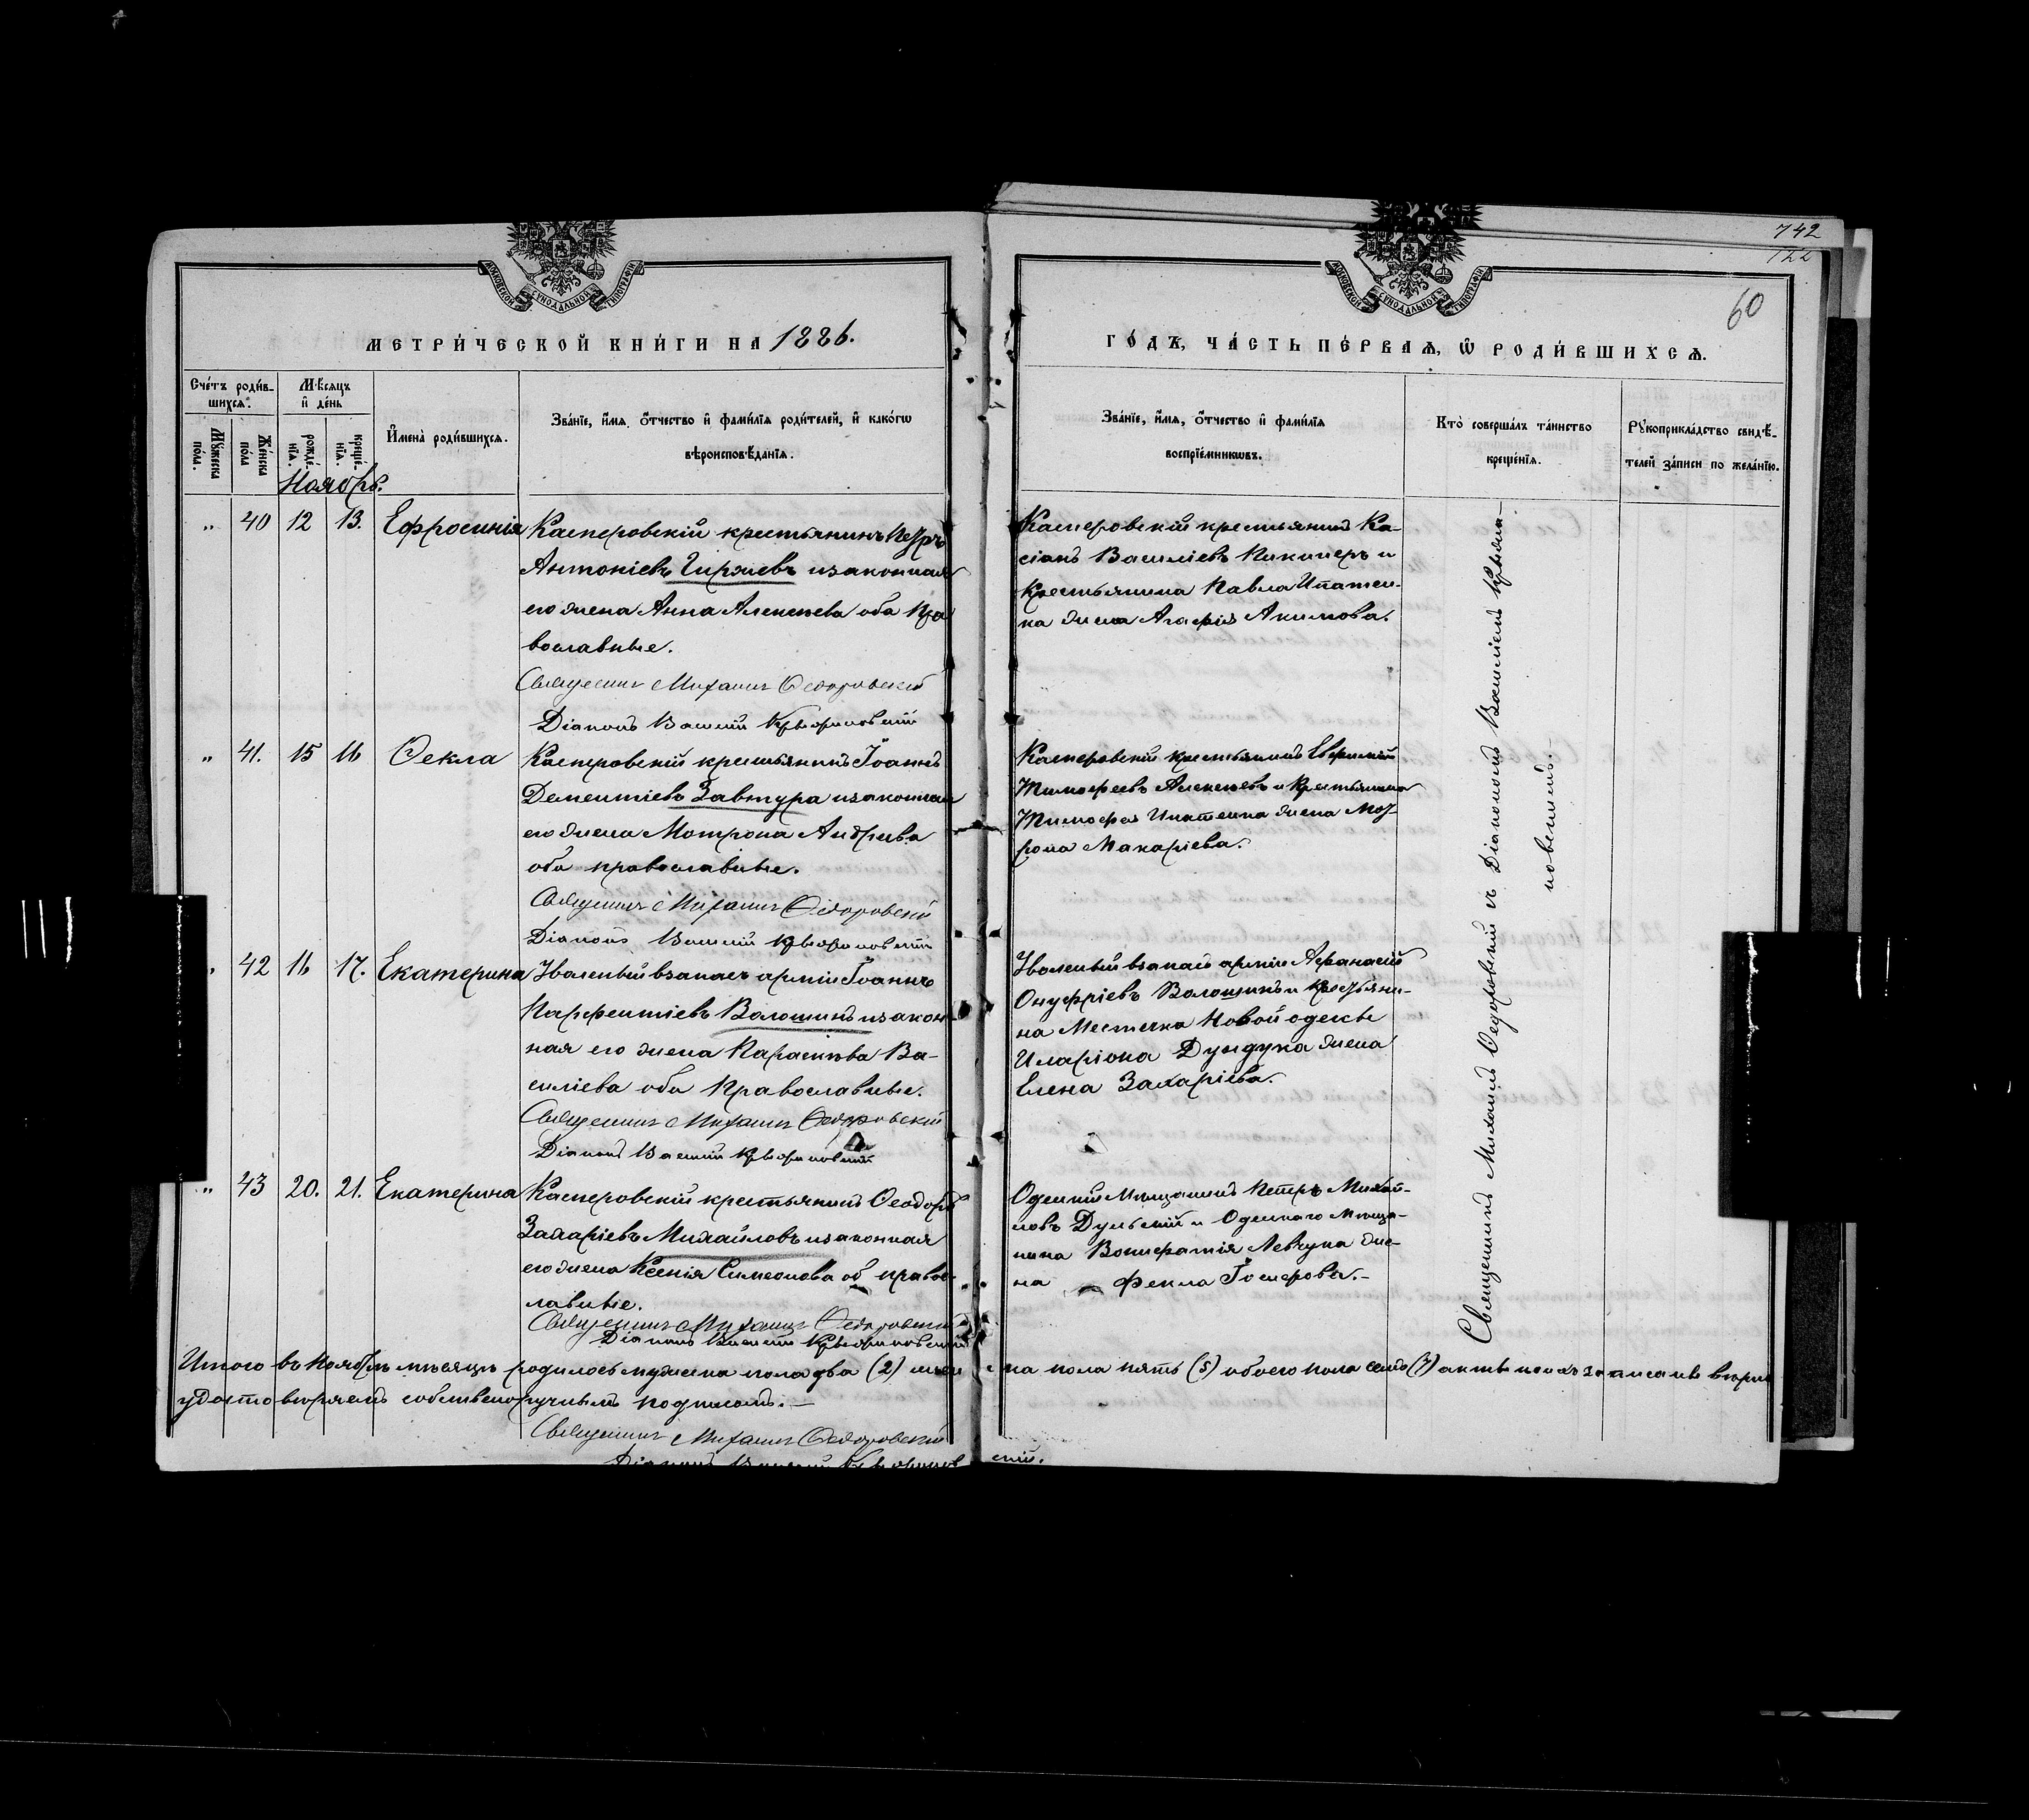 742
122
60
МОСКОВСКОЙ СУНОДАЛЬНОЙ ТИПОГРАФІИ
МОСКОВСКОЙ СУНОДАЛЬНОЙ ТИПОГРАФІИ
МЕТРИ́ЧЕСКОЙ КНИ́ГИ НА 1886.
ГО́ДЪ, ЧА́СТЬ ПЕ́РВАѦ, Ѿ РОДИ́ВШИХСѦ.
Сче́тъ роди́в-
шихсѧ.
Мѣ́сяцъ
и҆ де́нь
Мꙋ́жеска
по́ла.
Же́нска
по́ла
рожде́-
нїѧ.
креще́-
нїѧ.
И҆мена̀ роди́вшихсѧ.
Зва́нїе, и҆́мѧ, ѻ҆́тчество и҆ фами́лїѧ роди́телей, и҆ како́гѡ
вѣроисповѣ́данїѧ.
Зва́нїе, и҆́мѧ, ѻ҆́тчество и҆ фами́лїѧ
воспрїе́мникѡвъ.
Кто̀ соверша́лъ та́инство
креще́нїѧ.
Рꙋкоприкла́дство свидѣ́-
телей за́писи по жела́нїю.
Ноябрь.
„ 40 12 13. Ефросинія
Касперовскій крестьянинъ Петръ
Антоніевъ Гиряевъ изаконная
его жена Анна Алексѣева оба Пра
вославные.
Священникъ Михаилъ Ѳедоровскій
Діаконъ Василій
Касперовскій крестьянинъ Ка-
сіанъ Василіевъ и
Крестьянина Павла Ипатен-
ка жена Агафія Акимова.
„ 41. 15 16 Ѳекла
Касперовскій крестьянинъ Іоаннъ
Дементіевъ Завтура изаконная
его жена Мотрона Андреева
оба православные.
Священникъ Михаилъ Ѳедоровскій
Діаконъ Василій
Касперовскій крестьянинъ
Тимофеевъ Алексѣевъ и Крестьянина
Тимофея Ипатенка жена Мот-
рона Макаріева.
„ 42 16 17. Екатерина
Уволеный взапасъ арміи Іоаннъ
Парфентіевъ Волошинъ изакон
ная его жена Параскева Ва-
силіева оба Православные.
Священникъ Михаилъ Ѳедоровскій
Діаконъ Василій
Уволеный взапасъ арміи Афанасій
Онуфріевъ Волошинъ и Крестьяни-
на Местечка Новой одессы
Иларіона Дундука жена
Елена Захаріева.
„ 43 20. 21. Екатерина
Касперовскій крестьянинъ Ѳеодоръ
Захаріевъ Михайловъ изаконная
его жена Ксенія Симеонова об правос-
лавные.
Священникъ Михаилъ Ѳедоровскій
Діаконъ Василій
Одескій Мѣщанинъ Петръ Михай-
ловъ Дульскій и Одескаго мѣща-
нина Вонифатія Левчука же-
на Фекла Іосифова.
Священникъ Михаилъ Ѳедоровскій съ Діакономъ Василіемъ
новскимъ.
Итого въ Ноябрѣ мѣсяцѣ родилось мужеска пола два (2) женска пола пять (5) обоего пола семь (7) записанъ вѣрно
удостовѣряемъ собственоручнымъ подписомъ.
Священникъ Михаилъ Ѳедоровскій
Діаконъ Василій